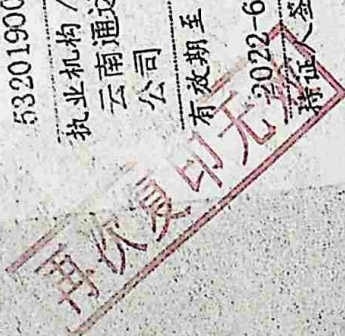 53201900
执业机构
云南通达
公司
有效期至
2022-6
持证人签
再次复印无效